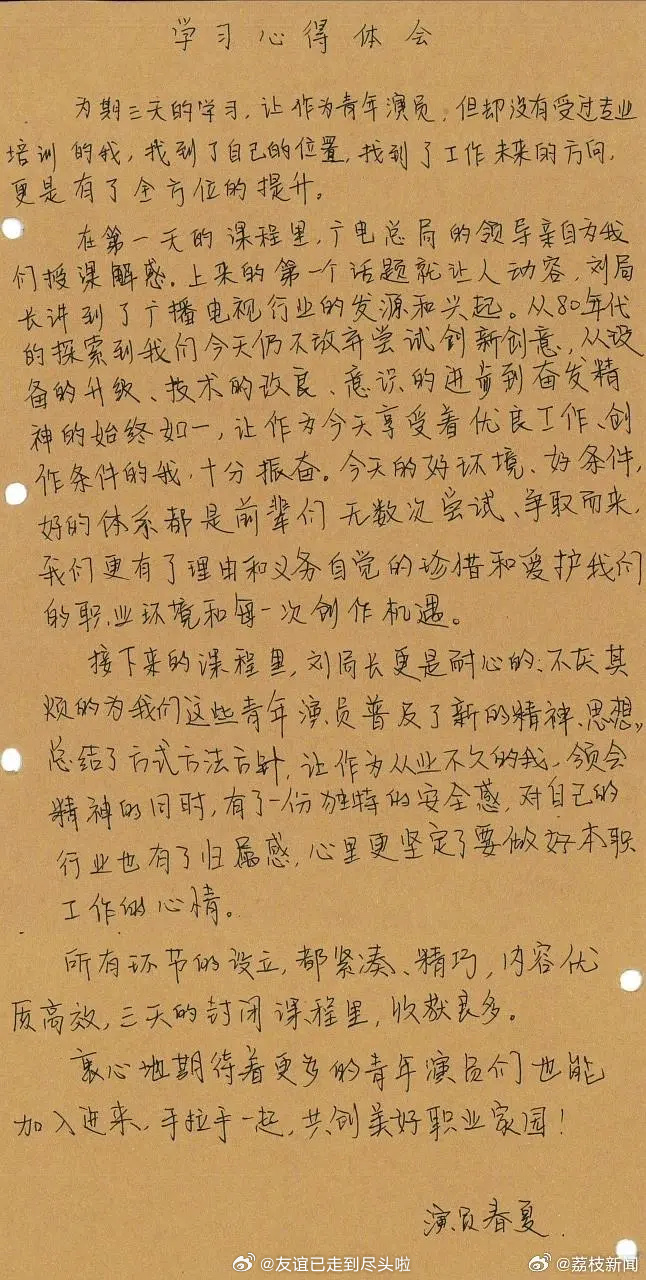 学习心得体会
为期三天的学习，让作为青年演员，但却没有受过专业
培训的我，找到了自己的位置，找到了工作未来的方向，
更是有了全方位的提升。
在第一天的课程里，广电总局的领导亲自为我
们授课解惑。上来的第一个话题就让人动容，刘局
长讲到了广播电视行业的发源和兴起。从80年代
的探索到我们今天仍不放弃尝试创新创意，从设
备的升级、技术的改良、意识的进步到奋发精
神的始终如一，让作为今天享受着优良工作、创
作条件的我，十分振奋。今天的好环境、好条件，
好的体系都是前辈们无数次尝试、争取而来，
我们更有了理由和义务自觉的珍惜和爱护我们
的职业环境和每一次创作机遇。
接下来的课程里，刘局长更是耐心的、不厌其
烦的为我们这些青年演员普及了新的精神、思想，
总结了方式方法方针，让作为从业不久的我，领会
精神的同时，有了一份独特的安全感，对自己的
行业也有了归属感，心里更坚定了要做好本职
工作的心情。
所有环节的设立，都紧凑、精巧，内容优
质高效，三天的封闭课程里，收获良多。
衷心地期待着更多的青年演员们也能
加入进来，手拉手一起，共创美好职业家园！
演员春夏.
@友谊已走到尽头啦
@荔枝新闻